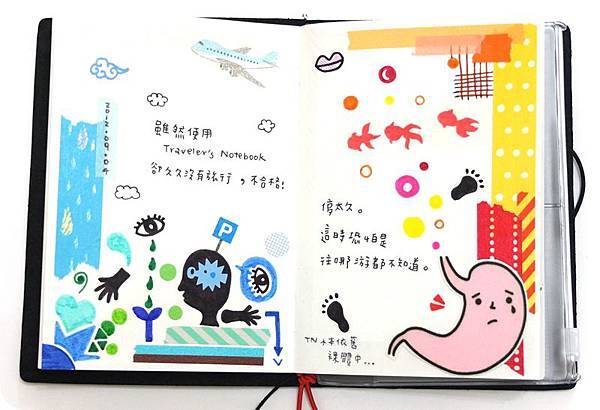 2012.09.04
雖然使用
Traveler's Notebook
卻久久沒有旅行，不合格!
P
停太久。
這時恐怕是
往哪游都不知道。
TN 依舊
裸體中...